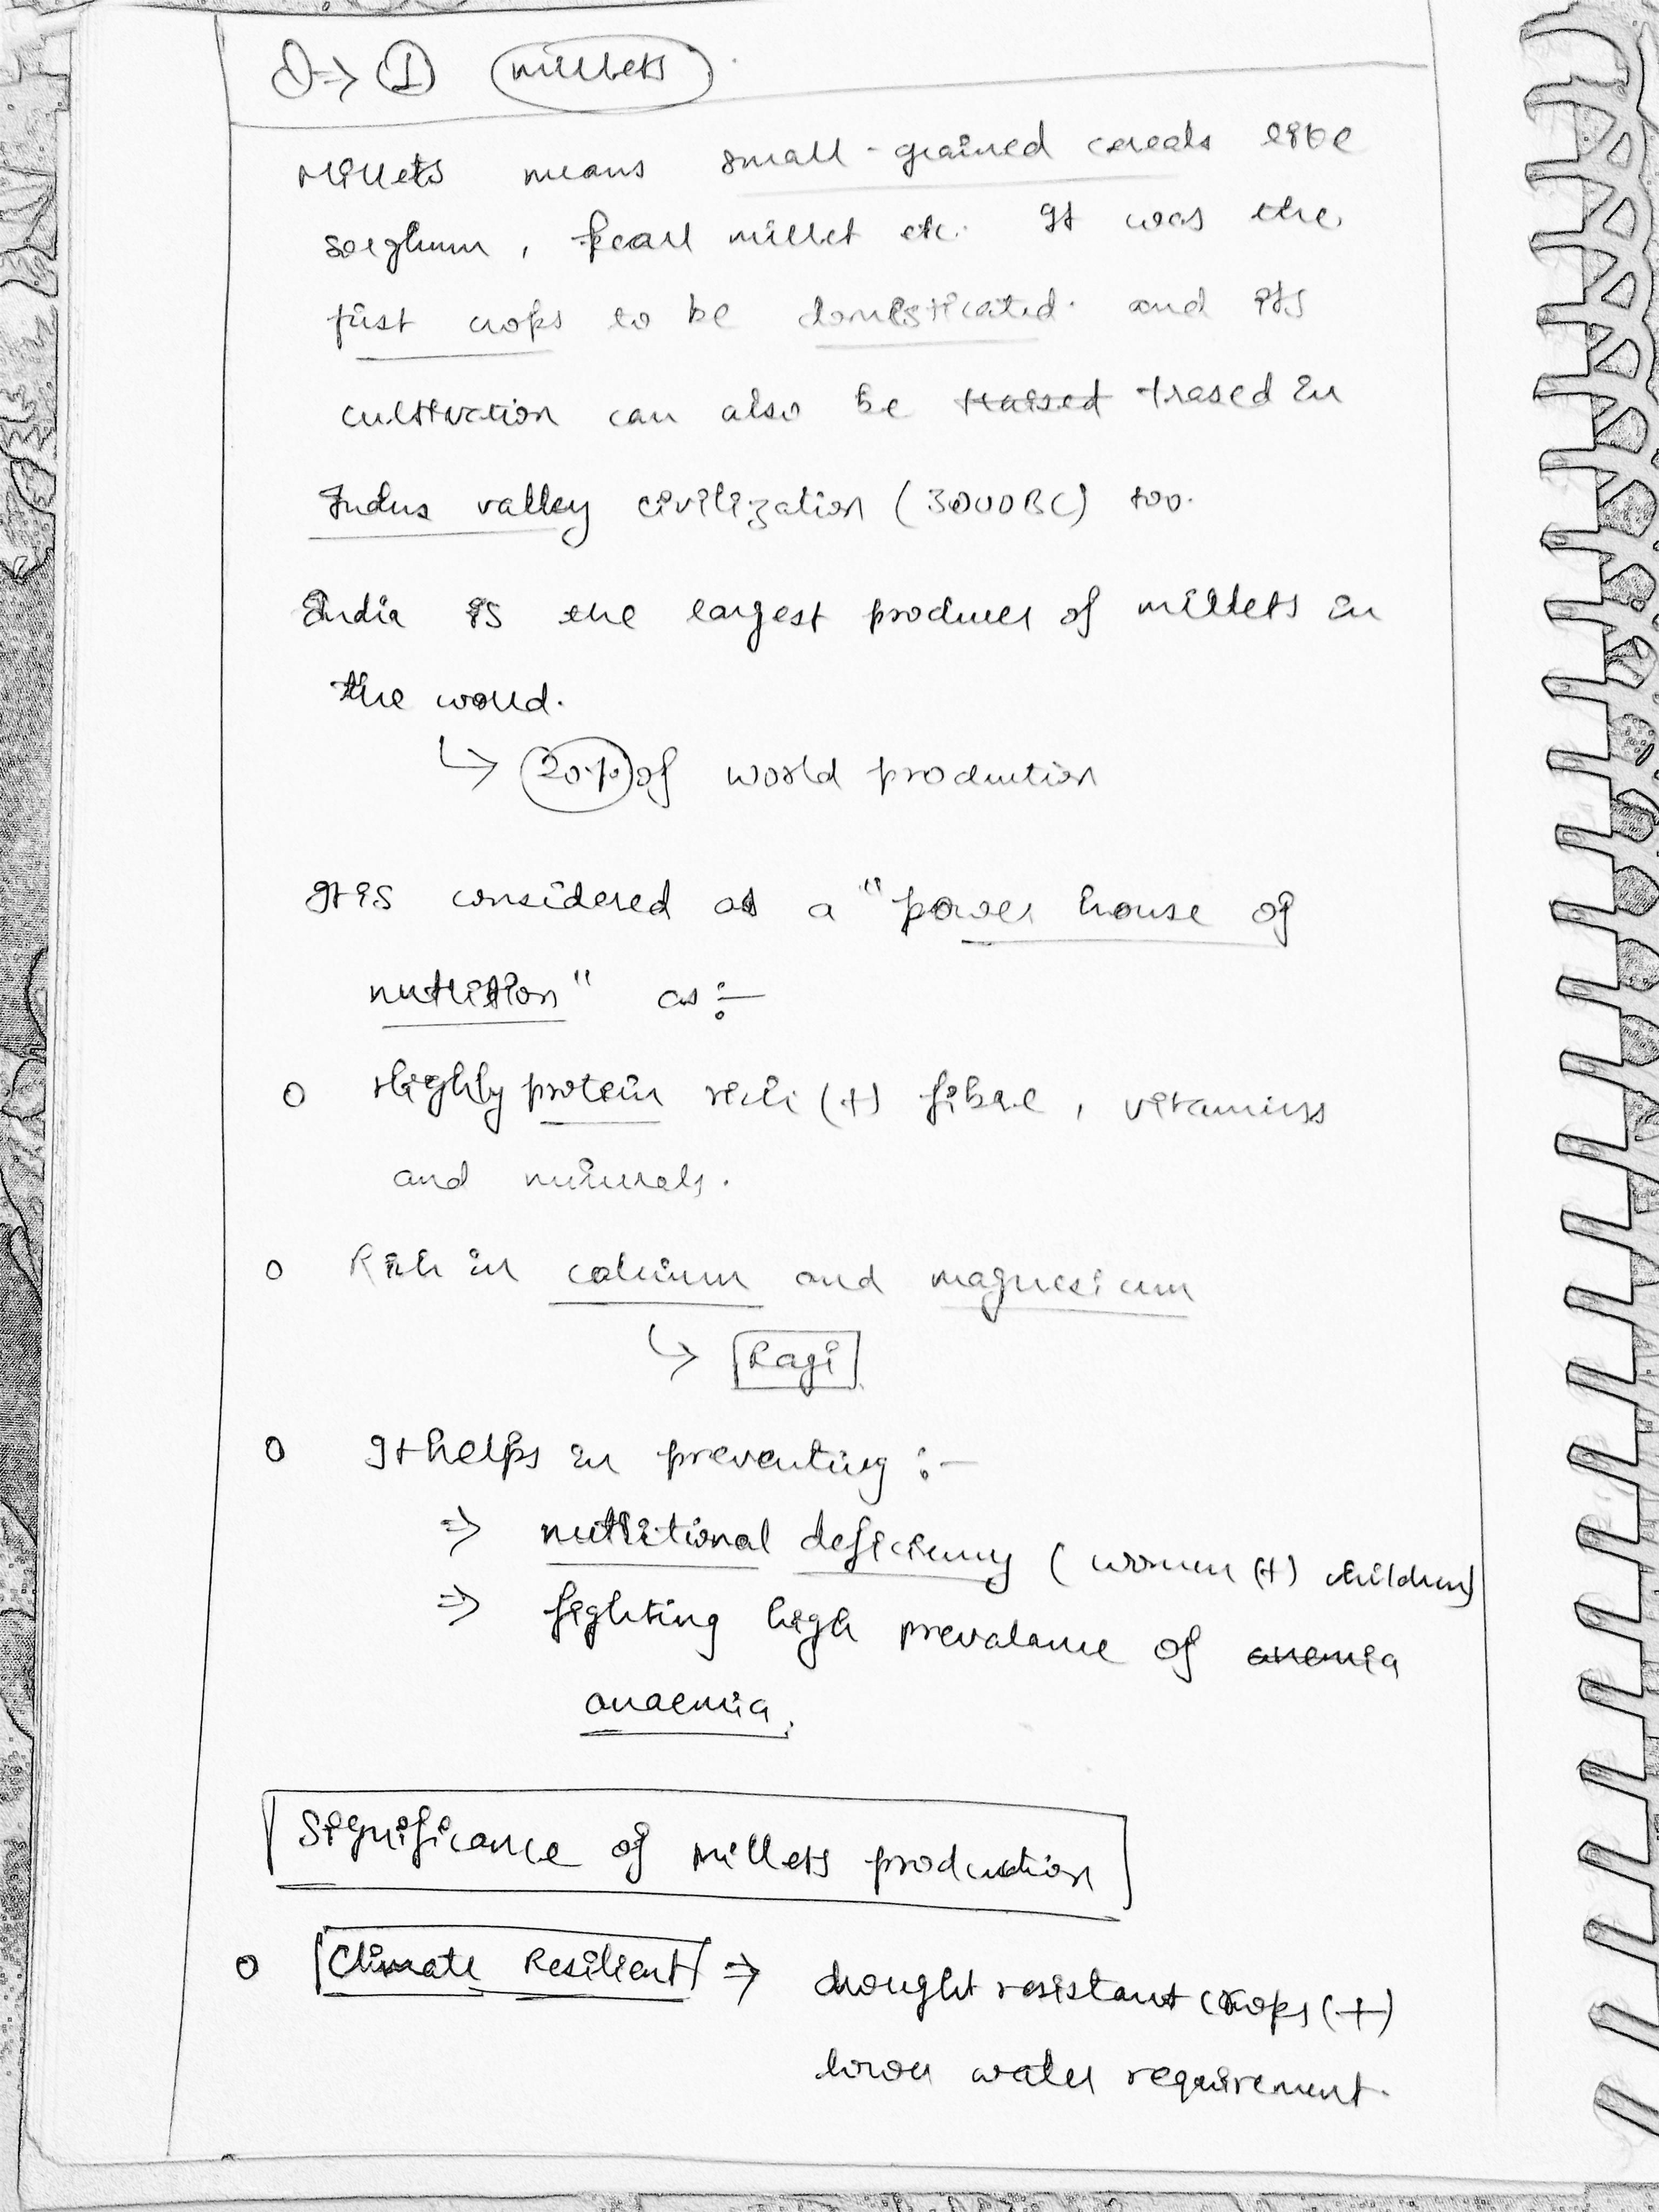 ①⇒ ① millets
Millets means small-grained cereals like
sorghum, pearl millet etc. It was the
first crops to be domesticated. and its
cultivation can also be traised trased in
Indus valley civilization (3000BC) too.
India is the largest producer of millets in
the world.
↳ 20% of world production
It is considered as a "power house of
nutrition" as:-
o Highly protein rich (+) fibre, vitamins
and minerals.
o Rich in calcium and magnesium
↳ Ragi
o It helps in preventing :-
⇒ nutritional deficiency (women (+) children)
⇒ fighting high prevalance of anemia
anaemia.
Significance of millets production
o Climate Resilient ⇒ drought resistant crops (+)
lower water requirement.